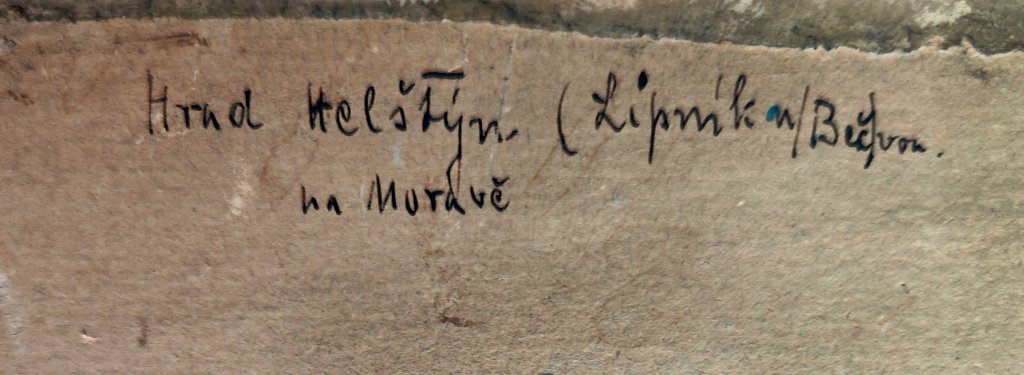 Hrad Helštýn. (Lipník n/Bečvou.
na Moravě